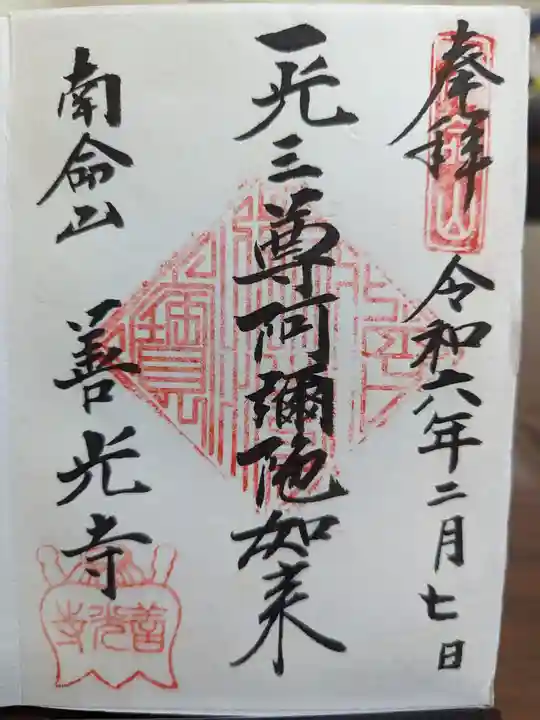 奉拝
令和六年二月七日
一光三尊阿彌陀如来
南命山 善光寺
善光寺